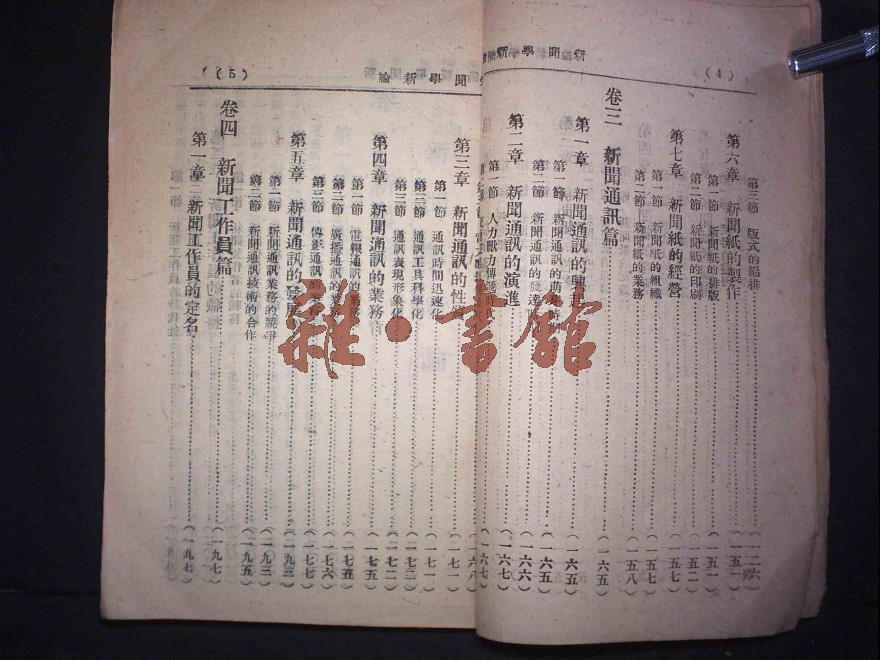 新聞學新論
（4）
第三節　版式的編排……（一二六）
第六章　新聞紙的製作……（一五一）
第一節　新聞紙的排版……（一五一）
第二節　新聞紙的印刷……（一五二）
第七章　新聞紙的經營……（一五七）
第一節　新聞紙的組織……（一五七）
第二節　新聞紙的業務……（一五八）
卷三　新聞通訊篇……（一六五）
第一章　新聞通訊的興起……（一六五）
第一節　新聞通訊的萌芽時期……（一六五）
第二節　新聞通訊的發達……（一六六）
第二章　新聞通訊的演進……（一六七）
第一節　人力獸力傳遞時代……（一六七）
聞學新論
（5）
第三章　新聞通訊的性質……（一七一）
第一節　通訊時間迅速化……（一七一）
第二節　通訊工具科學化……（一七二）
第三節　通訊表現形象化……
第四章　新聞通訊的業務……（一七五）
第一節　電報通訊的業務……（一七五）
第二節　廣播通訊的業務……（一七六）
第三節　傳影通訊的業務……（一七七）
第五章　新聞通訊的發展……（一九三）
第一節　新聞通訊業務的競爭……（一九三）
第二節　新聞通訊技術的合作……（一九五）
卷四　新聞工作員篇……（一九七）
第一章　新聞工作員的定名……（一九七）
雜·書館